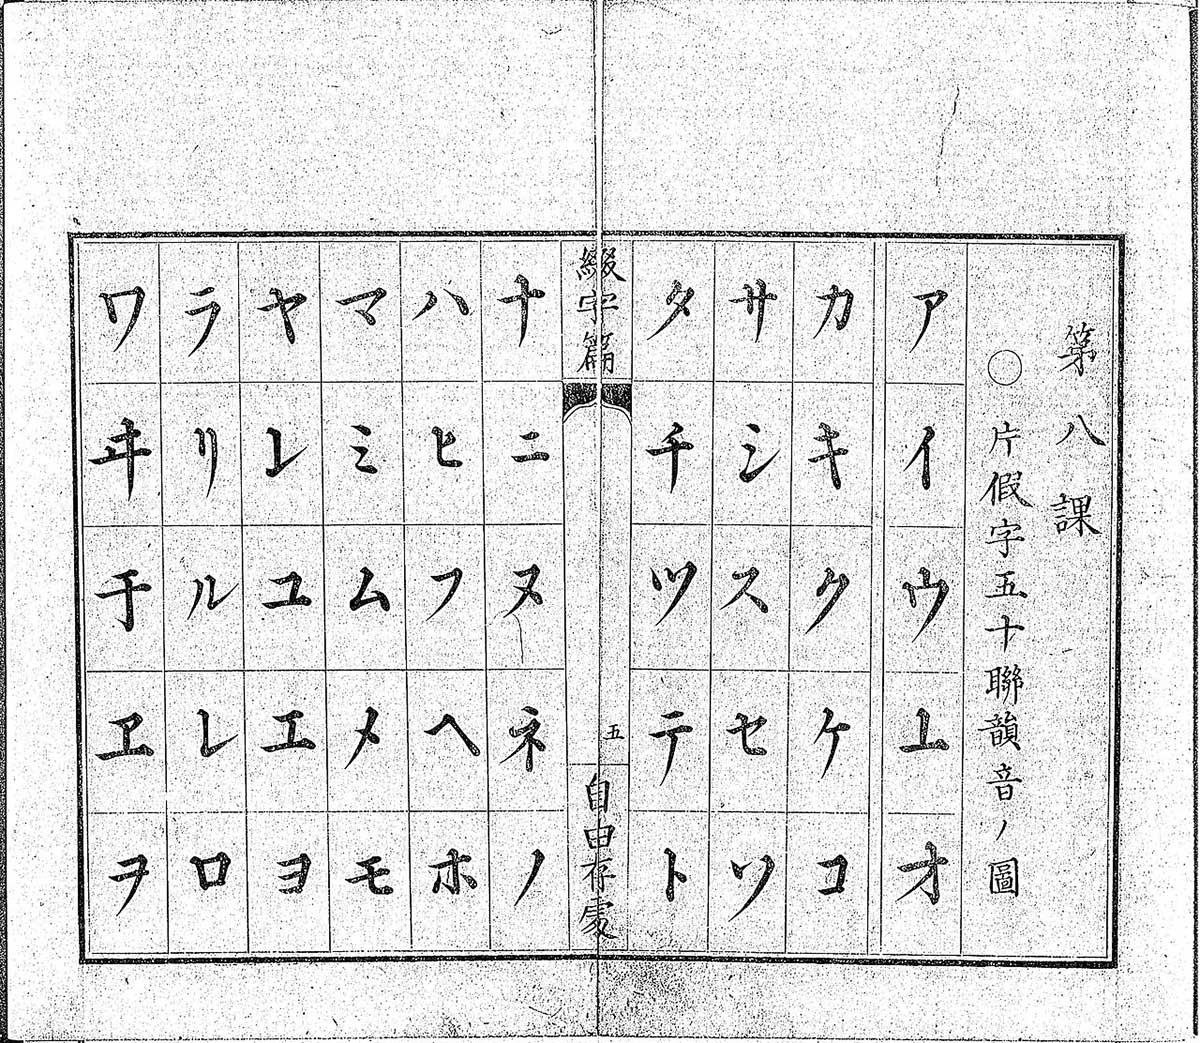 第八課
〇片假字五十聯韻音ノ圖
アイウ上オ
カキクケコ
サシスセソ
タチツテト
綴字篇 五 自由存處
ナニヌネノ
ハヒフヘホ
マミムメモ
ヤレユエヨ
ラリルレロ
ワヰ于ヱヲ